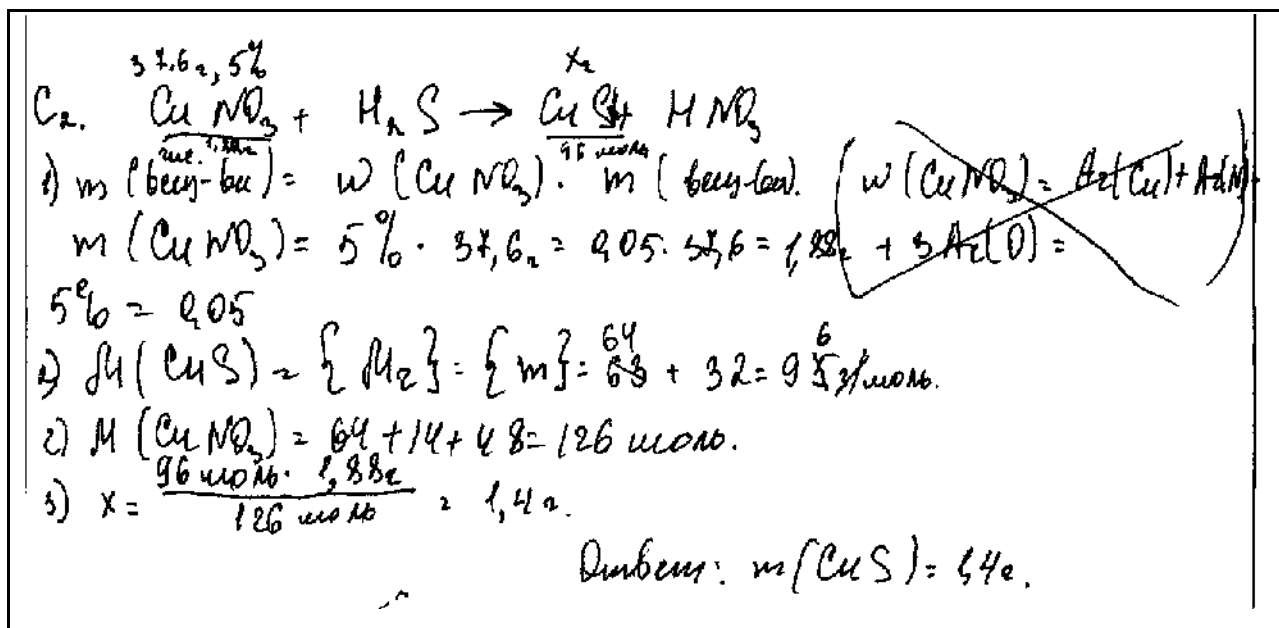 37,6г, 5% xг
C2. CuNO3 + H2S → CuS + HNO3
1,88г 96 моль
1) m (вещ-ва) = w (CuNO3) · m (вещ-ва). (w (CuNO3) = Ar(Cu) + Ar(N) +
m (CuNO3) = 5% · 37,6г = 0,05 · 37,6 = 1,88г + 3Ar(O) =
5% = 0,05
2) M (CuS) = {Mr} = {m} = 64 + 32 = 96 г/моль.
2) M (CuNO3) = 64 + 14 + 48 = 126 моль.
3) x = 96 моль · 1,88г / 126 моль = 1,4г.
Ответ: m (CuS) = 1,4г.